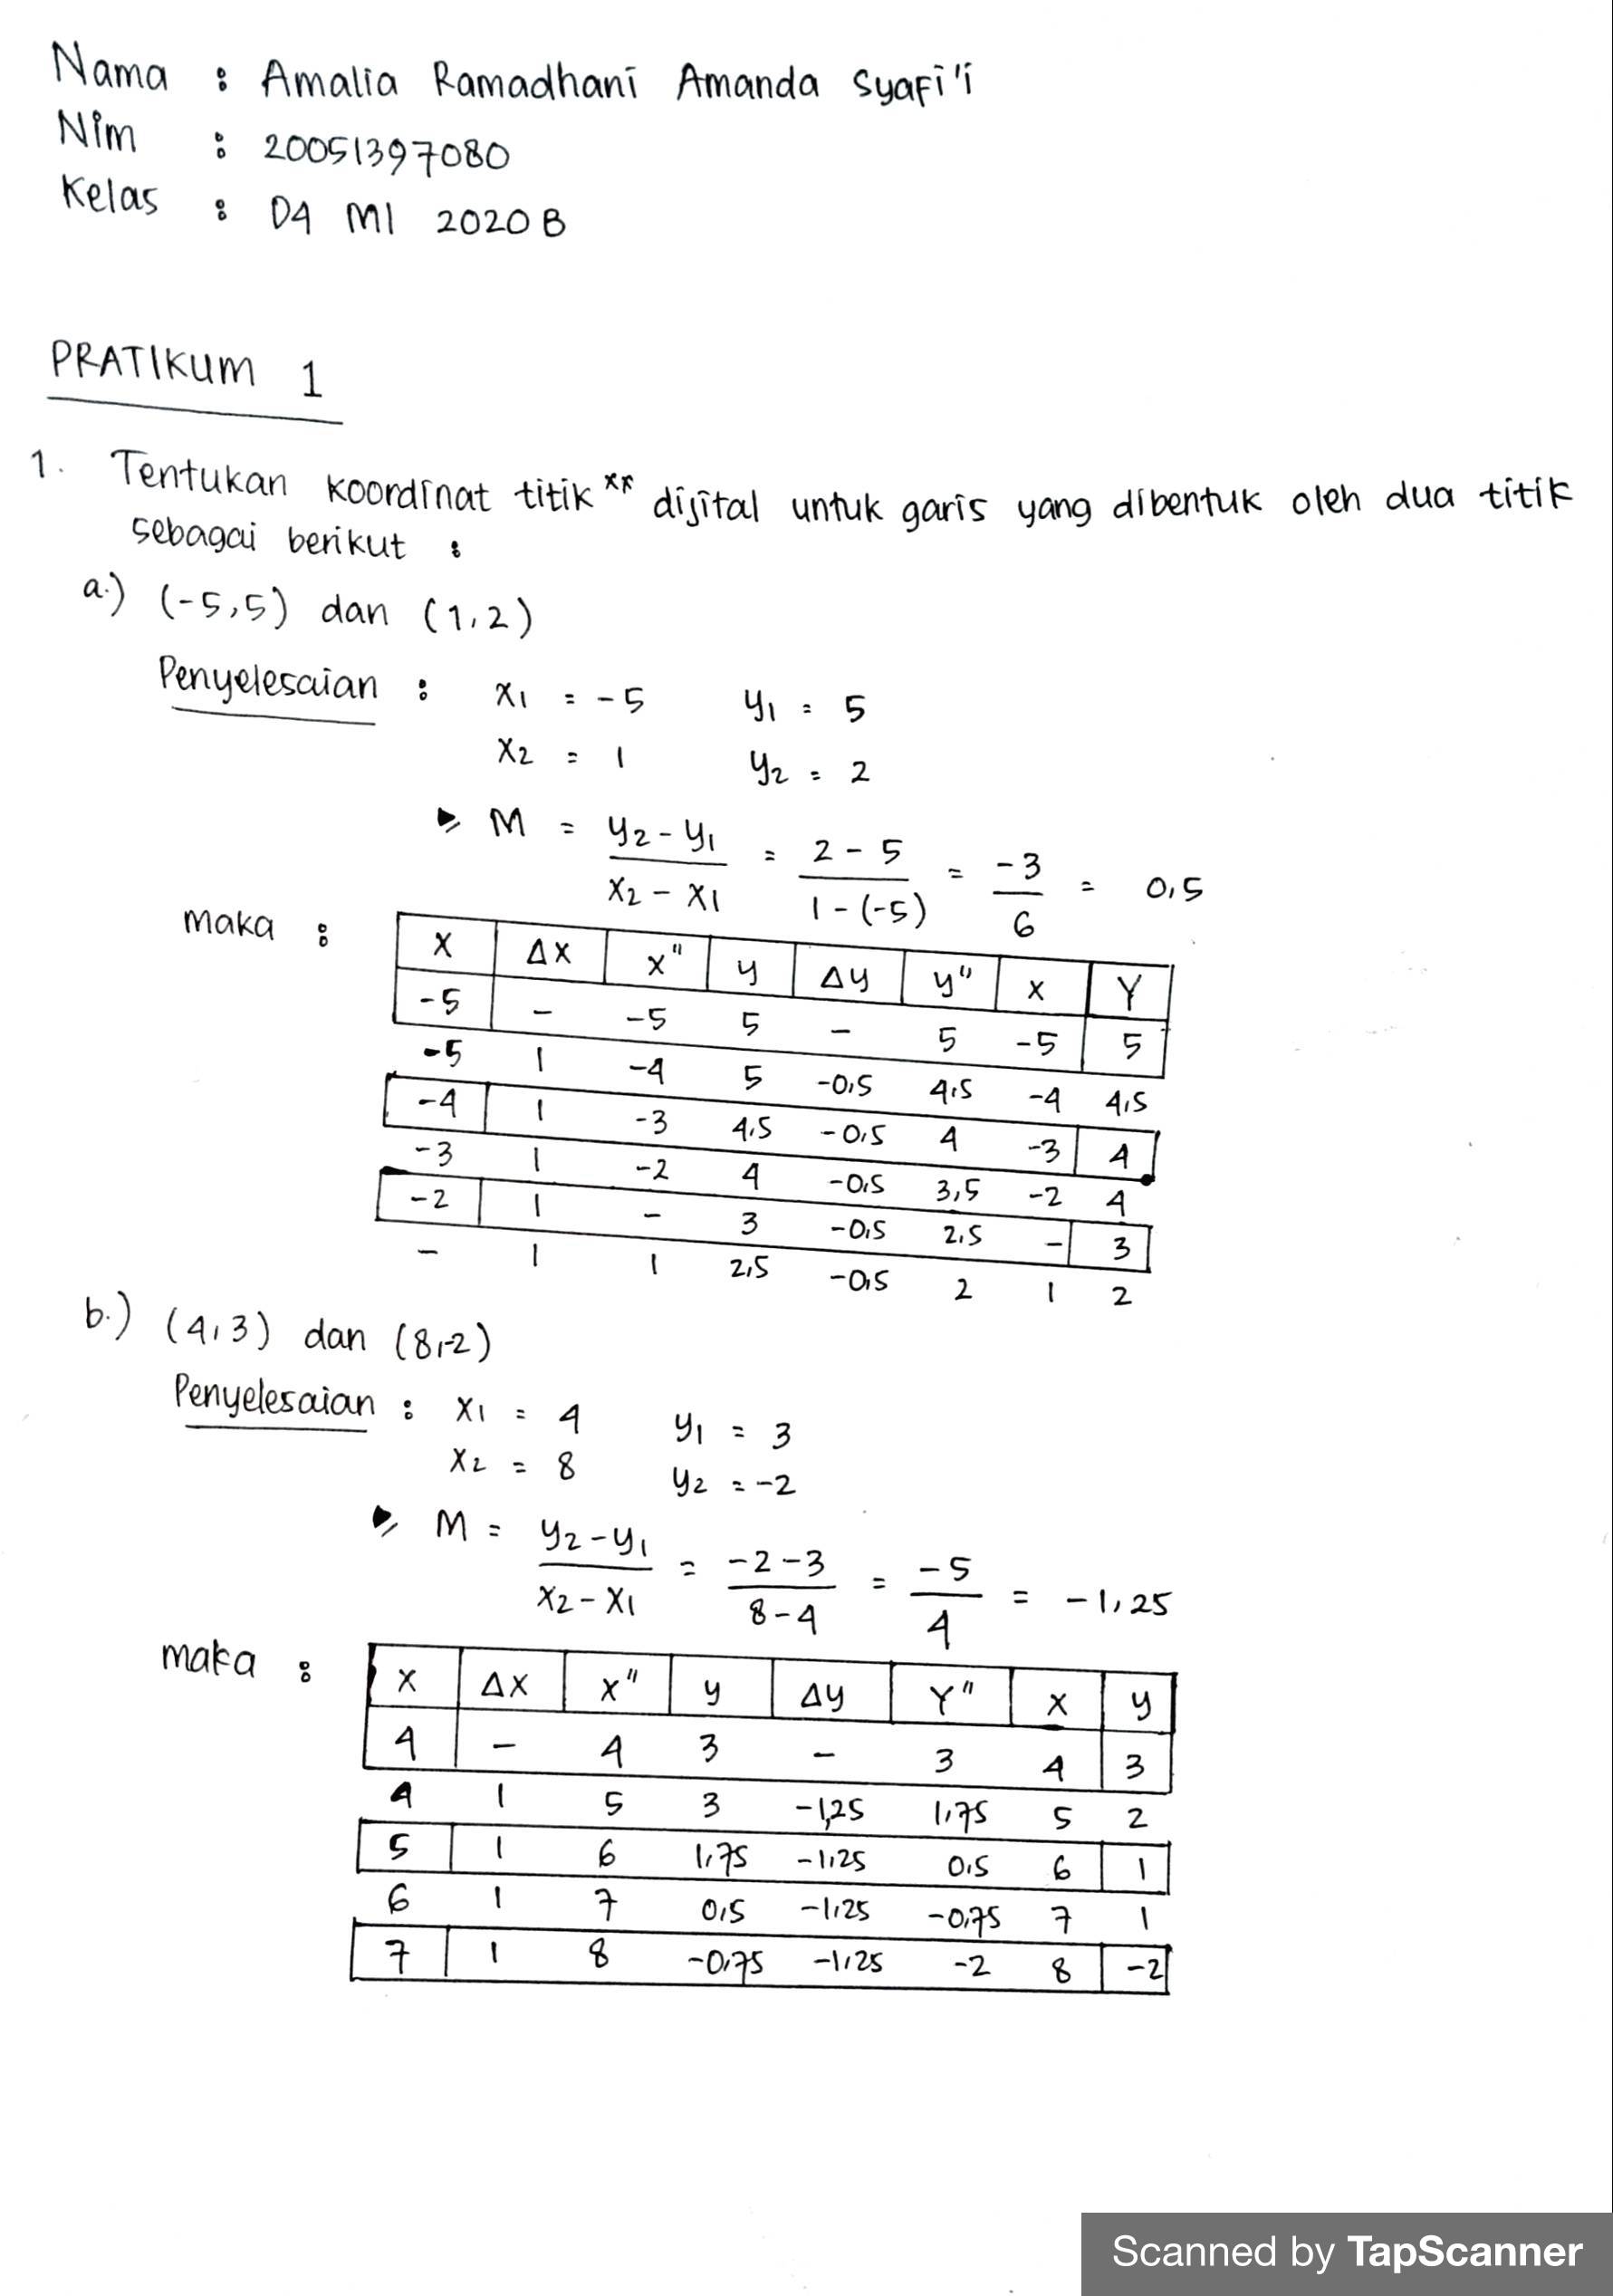 Nama : Amalia Ramadhani Amanda Syafi'i
Nim : 20051397080
Kelas : D4 MI 2020B
PRATIKUM 1
1. Tentukan koordinat titik ** dijital untuk garis yang dibentuk oleh dua titik
sebagai berikut :
a.) (-5,5) dan (1,2)
Penyelesaian : x1 = -5 y1 = 5
x2 = 1 y2 = 2
M = y2 - y1 / x2 - x1 = 2 - 5 / 1 - (-5) = -3 / 6 = 0,5
maka :
X ΔX X" y Δy y" X Y
-5 - -5 5 - 5 -5 5
-5 1 -4 5 -0,5 4,5 -4 4,5
-4 1 -3 4,5 -0,5 4 -3 4
-3 1 -2 4 -0,5 3,5 -2 4
-2 1 - 3 -0,5 2,5 - 3
- 1 1 2,5 -0,5 2 1 2
b.) (4,3) dan (8,-2)
Penyelesaian : x1 = 4 y1 = 3
x2 = 8 y2 = -2
M = y2 - y1 / x2 - x1 = -2 - 3 / 8 - 4 = -5 / 4 = -1,25
maka :
X ΔX X" y Δy Y" X y
4 - 4 3 - 3 4 3
4 1 5 3 -1,25 1,75 5 2
5 1 6 1,75 -1,25 0,5 6 1
6 1 7 0,5 -1,25 -0,75 7 1
7 1 8 -0,75 -1,25 -2 8 -2
Scanned by TapScanner